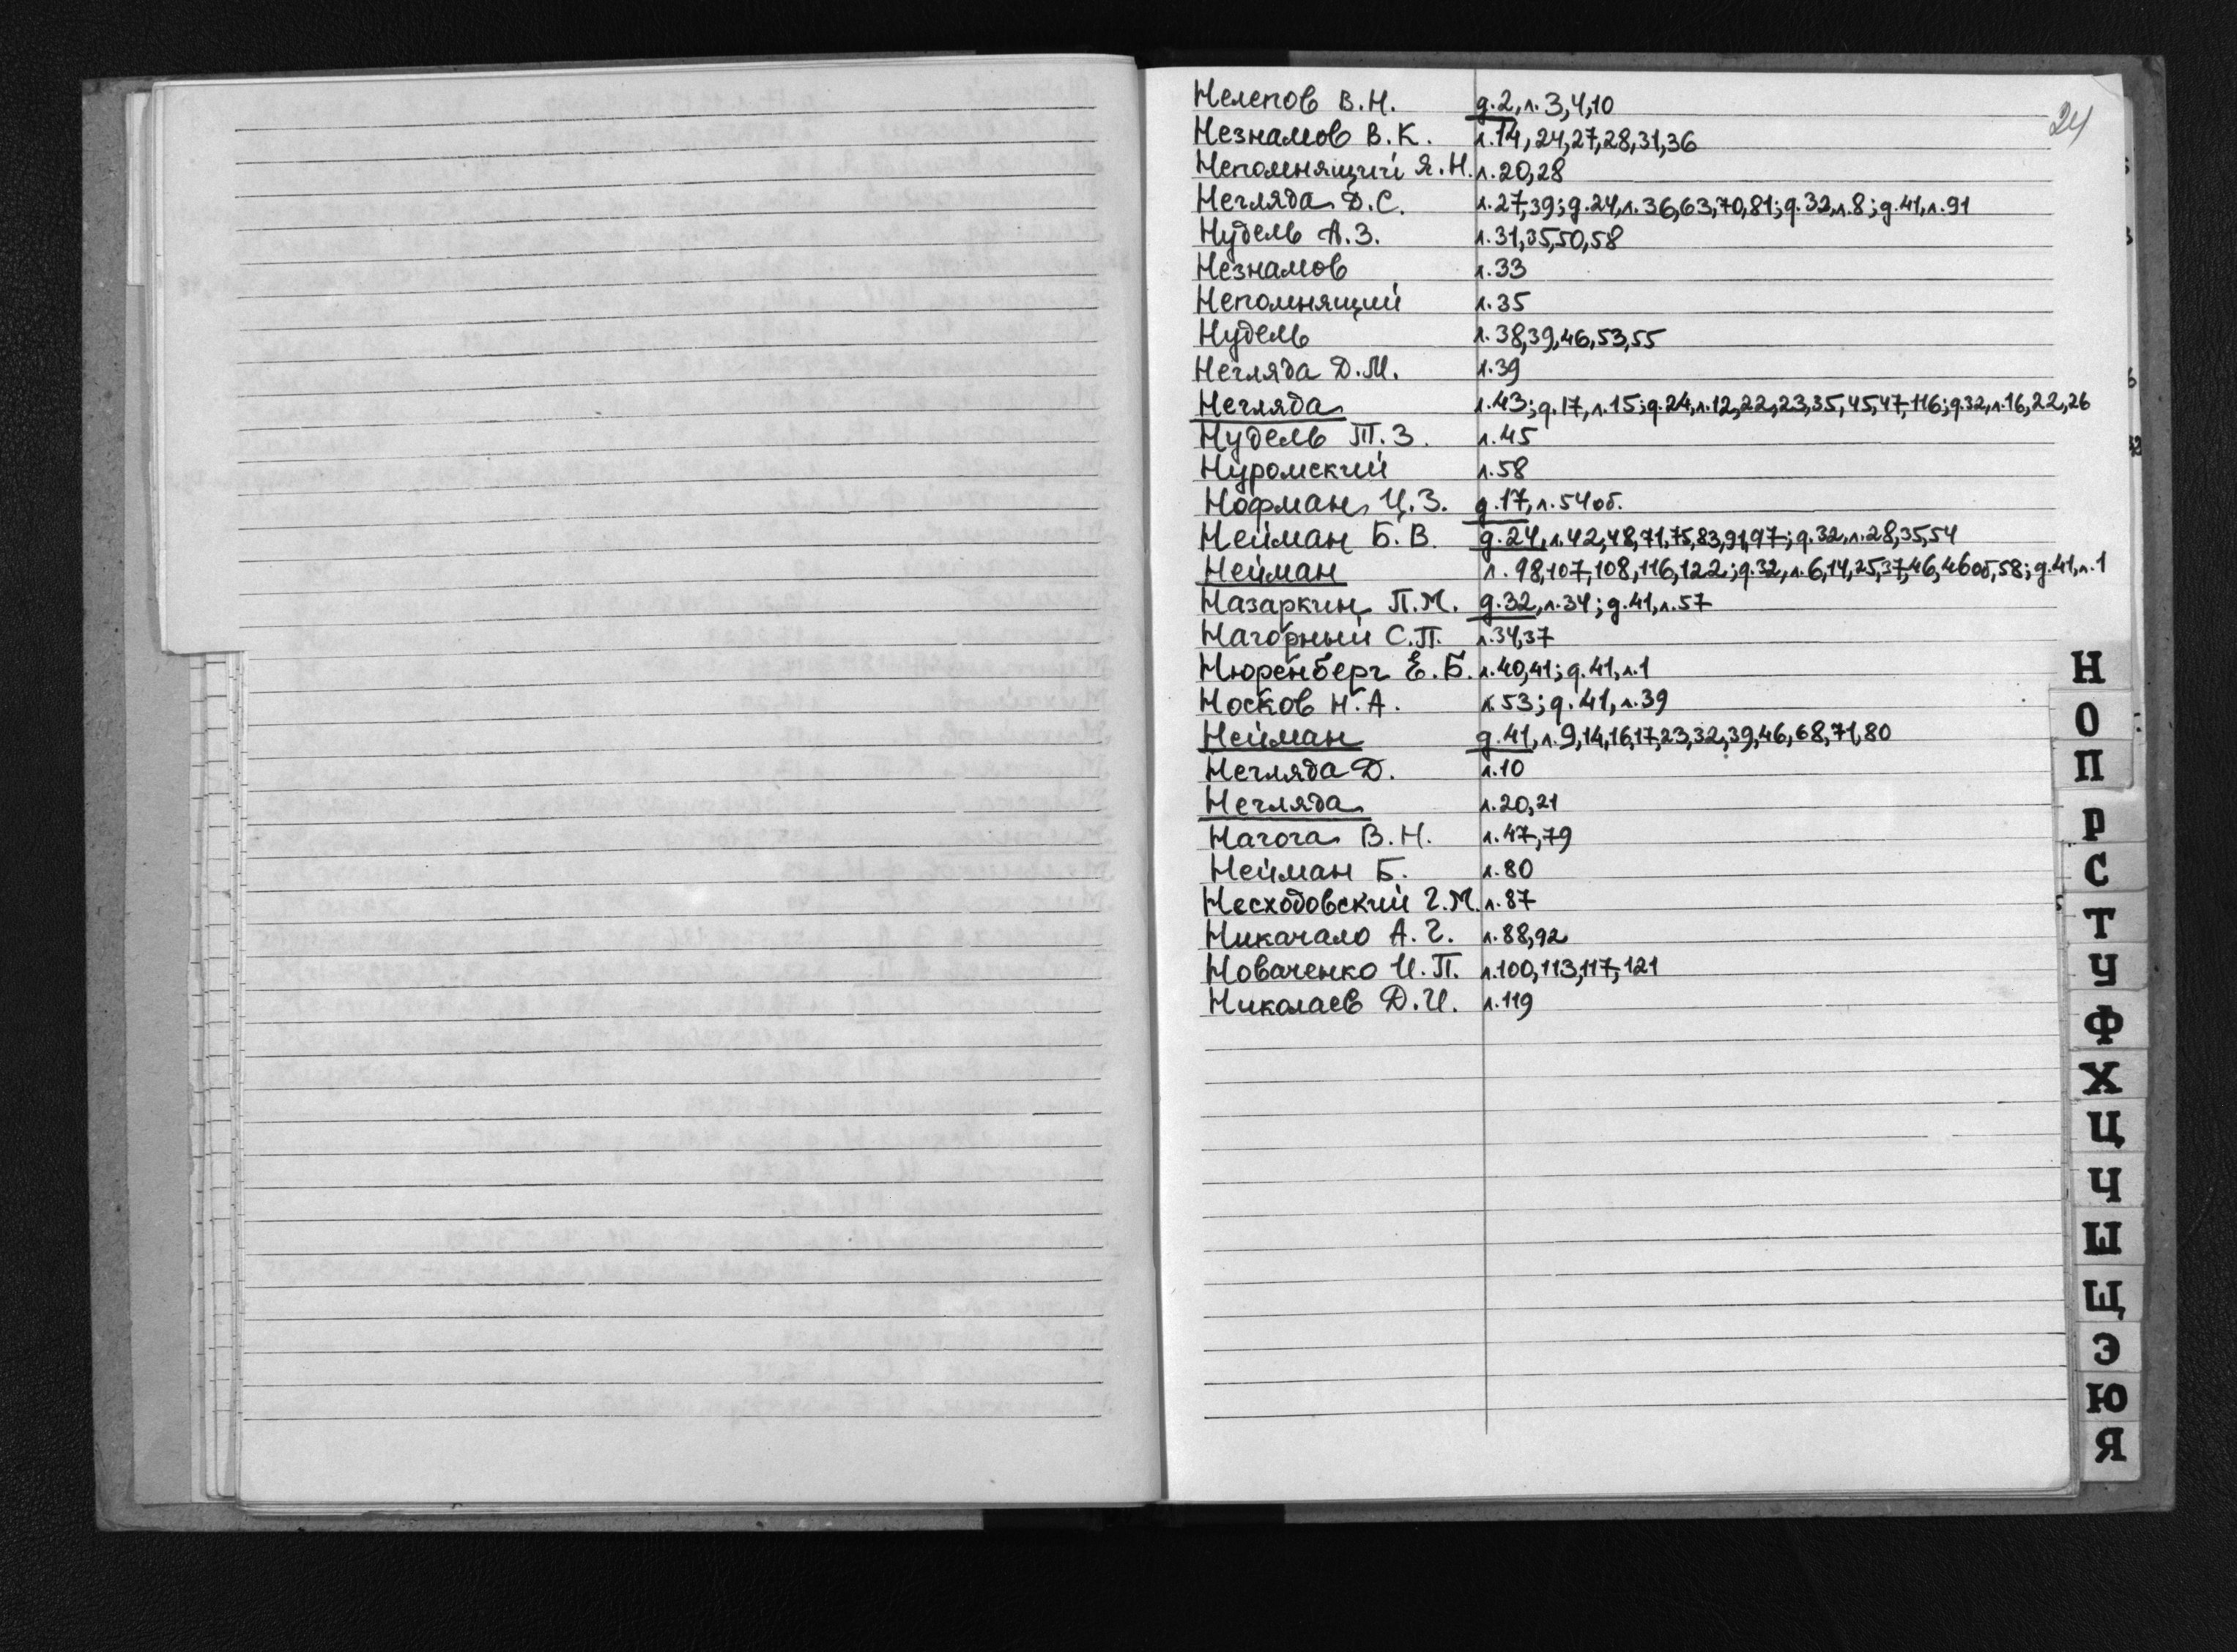 24
Нелепов В.Н. д.2, л.3,4,10
Незнамов В.К. л.14,24,27,28,31,36
Непомнящий Я.Н. л.20,28
Негляда Д.С. л.27,39; д.24, л.36,63,70,81; д.32, л.8; д.41, л.91
Нудель А.З. л.31,35,50,58
Незнамов л.33
Непомнящий л.35
Нудель л.38,39,46,53,55
Негляда Д.М. л.39
Негляда л.43; д.17, л.15; д.24, л.12,22,23,35,45,47,116; д.32, л.16,22,26
Нудель Т.З. л.45
Нуромский л.58
Нофман Ц.З. д.17, л.54об.
Нейман Б.В. д.24, л.42,48,71,75,83,91,97; д.32, л.28,35,54
Нейман л.98,107,108,116,122; д.32, л.6,14,25,37,46,46об,58; д.41, л.1
Назаркин П.М. д.32, л.34; д.41, л.57
Нагорный С.П. л.34,37
Нюренберг Е.Б. л.40,41; д.41, л.1
Носков Н.А. л.53; д.41, л.39
Нейман д.41, л.9,14,16,17,23,32,39,46,68,71,80
Негляда Д. л.10
Негляда л.20,21
Нагога В.Н. л.47,79
Нейман Б. л.80
Несходовский Г.М. л.87
Никачало А.Г. л.88,92
Новаченко И.П. л.100,113,117,121
Николаев Д.И. л.119
Н
О
П
Р
С
Т
У
Ф
Х
Ц
Ч
Ш
Щ
Э
Ю
Я